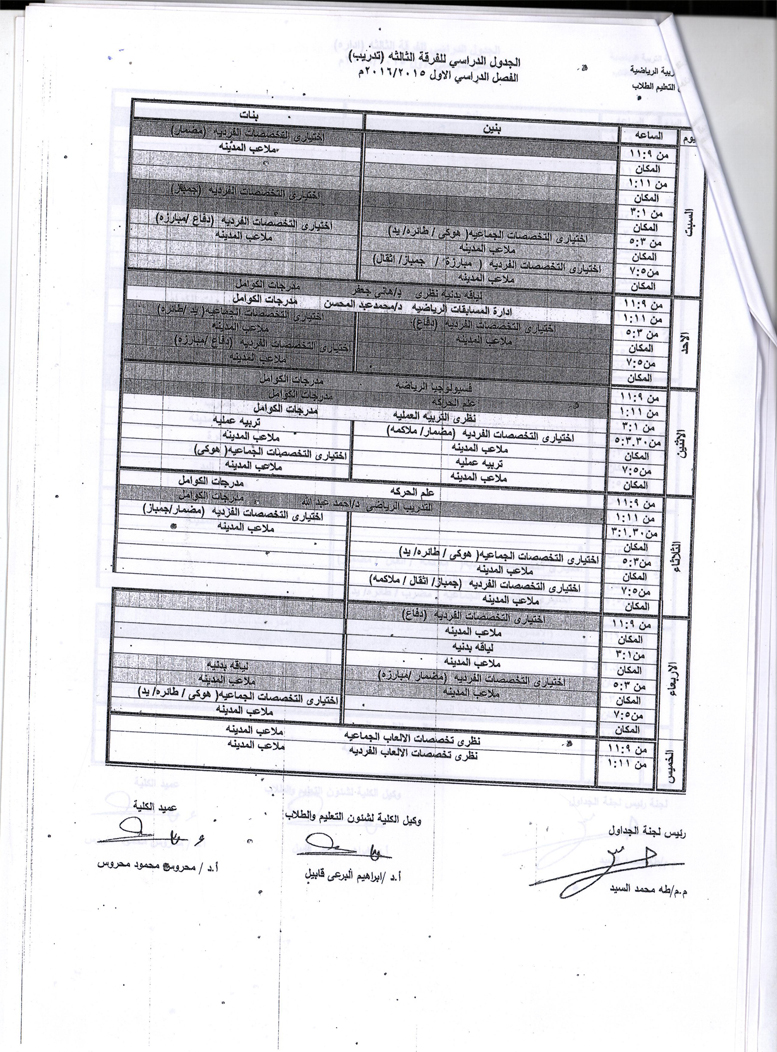 ربية الرياضية
التعليم الطلاب
الجدول الدراسي للفرقة الثالثه (تدريب)
الفصل الدراسي الاول ٢٠١٦/٢٠١٥م
يوم الساعه بنين بنات
السبت
من ١١:٩ اختيارى التخصصات الفرديه (مضمار)
المكان ملاعب المدينه
من ١:١١
المكان
من ٣:١ اختيارى التخصصات الفرديه (جمباز)
المكان
من ٥:٣ اختيارى التخصصات الجماعيه( هوكى / طائره/ يد) اختيارى التخصصات الفرديه (دفاع /مبارزه)
المكان ملاعب المدينه ملاعب المدينه
من ٧:٥ اختيارى التخصصات الفرديه ( مبارزة / جمباز/ اثقال)
المكان ملاعب المدينه
الاحد
من ١١:٩ لياقه بدنيه نظرى د/هانى جعفر مدرجات الكوامل
من ١:١١ ادارة المسابقات الرياضيه د/محمدعبد المحسن مدرجات الكوامل
من ٥:٣ اختيارى التخصصات الفرديه (دفاع) اختيارى التخصصات الجماعيه (يد /طائره)
المكان ملاعب المدينه ملاعب المدينه
من ٧:٥ اختيارى التخصصات الفرديه (دفاع /مبارزه)
المكان ملاعب المدينه
الاثنين
من ١١:٩ فسيولوجيا الرياضه مدرجات الكوامل
من ١:١١ علم الحركه مدرجات الكوامل
من ٣:١ نظرى التربيه العمليه مدرجات الكوامل
من ٥:٣.٣٠ اختيارى التخصصات الفرديه (مضمار/ ملاكمه) تربيه عمليه
المكان ملاعب المدينه ملاعب المدينه
من ٧:٥ تربيه عمليه اختيارى التخصصات الجماعيه( هوكى)
المكان ملاعب المدينه ملاعب المدينه
الثلاثاء
من ١١:٩ علم الحركه مدرجات الكوامل
من ١:١١ التدريب الرياضى د/احمد عبد الله مدرجات الكوامل
من ٣:١.٣٠ اختيارى التخصصات الفرديه (مضمار/جمباز)
المكان ملاعب المدينه
من ٥:٣ اختيارى التخصصات الجماعيه( هوكى / طائره/ يد)
المكان ملاعب المدينه
من ٧:٥ اختيارى التخصصات الفرديه (جمباز/ اثقال / ملاكمه)
المكان ملاعب المدينه
الاربعاء
من ١١:٩ اختيارى التخصصات الفرديه (دفاع)
المكان ملاعب المدينه
من ٣:١ لياقه بدنيه
المكان ملاعب المدينه
من ٥:٣ اختيارى التخصصات الفرديه (مضمار /مبارزه) لياقه بدنيه
المكان ملاعب المدينه ملاعب المدينه
من ٧:٥ اختيارى التخصصات الجماعيه( هوكى / طائره/ يد)
المكان ملاعب المدينه
الخميس
من ١١:٩ نظرى تخصصات الالعاب الجماعيه ملاعب المدينه
من ١:١١ نظرى تخصصات الالعاب الفرديه ملاعب المدينه
رئيس لجنة الجداول
م.م/طه محمد السيد
وكيل الكلية لشئون التعليم والطلاب
أ.د /ابراهيم البرعى قابيل
عميد الكلية
أ.د / محروس محمود محروس